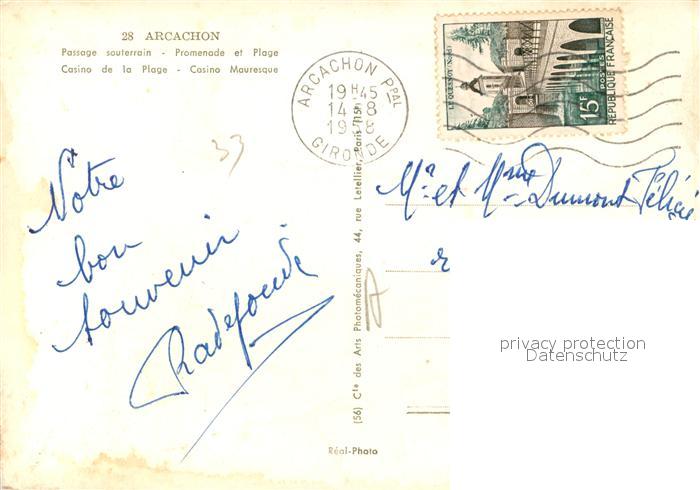 28 ARCACHON
Passage souterrain - Promenade et Plage
Casino de la Plage - Casino Mauresque
ARCACHON PPAL
19H45
14-8
GIRONDE
LE QUESNOY (Nord)
15F
POSTES
REPUBLIQUE FRANÇAISE
33
Notre
bon
souvenir
Mr et Mme Dumont Félicien
(56) Cie des Arts Photomécaniques, 44, rue Letellier, Paris (15e)
privacy protection
Datenschutz
Réal-Photo